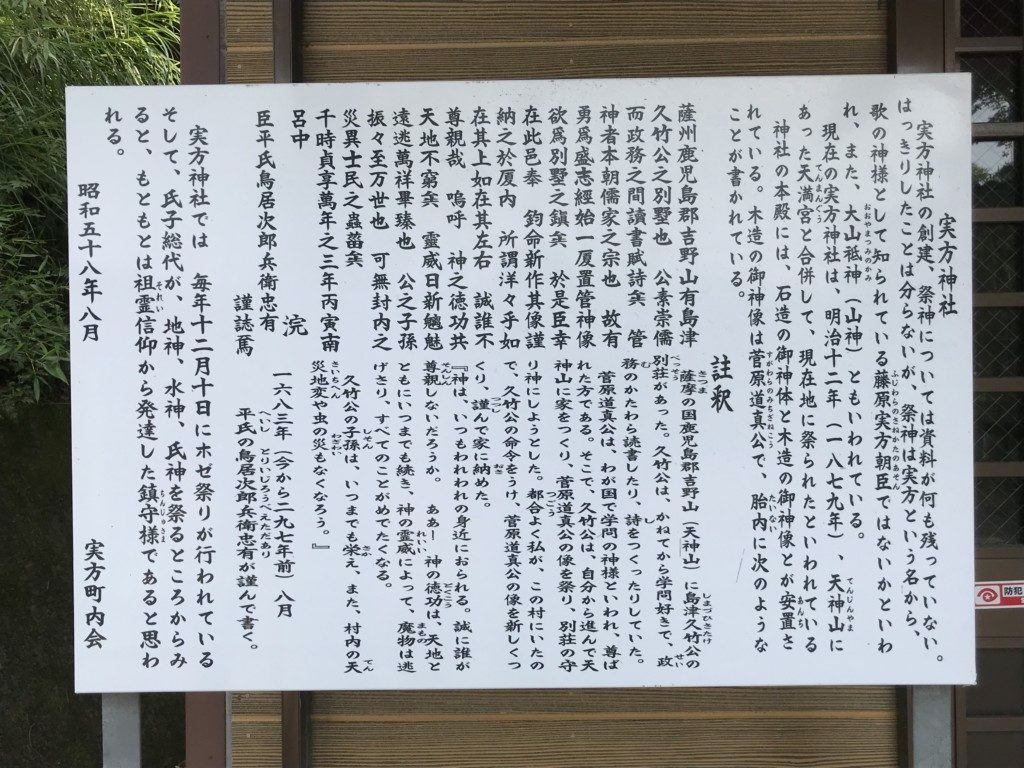 実方神社
実方神社の創建、祭神については資料が何も残っていない。
はっきりしたことは分らないが、祭神は実方という名から、
歌の神様として知られている藤原実方朝臣ではないかといわ
れ、また、大山祗神（山神）ともいわれている。
現在の実方神社は、明治十二年（一八七九年）、天神山に
あった天満宮と合併して、現在地に祭られたといわれている
神社の本殿には、石造の御神体と木造の御神像とが安置さ
れている。木造の御神像は菅原道真公で、胎内に次のような
ことが書かれている。
薩州鹿児島郡吉野山有島津
久竹公之別墅也　公素崇儒
而政務之間讀書賦詩矣　管
神者本朝儒家之宗也　故有
勇爲盛志經始一厦置管神像
欲爲別墅之鎮矣　於是臣幸
在此邑奉　鈞命新作其像謹
納之於厦内　所謂洋々乎如
在其上如在其左右　誠誰不
尊親哉　嗚呼　神之徳功共
天地不窮矣　靈威日新魑魅
遠逃萬祥畢臻也　公之子孫
振々至万世也　可無封内之
災異士民之蟲菑矣
千時貞享萬年之三年丙寅南
呂中　浣
臣平氏鳥居次郎兵衛忠有
謹誌焉
註釈
薩摩の国鹿児島郡吉野山（天神山）に島津久竹公の
別荘があった。久竹公は、かねてから学問好きで、政
務のかたわら読書したり、詩をつくったりしていた。
菅原道真公は、わが国で学問の神様といわれ、尊ば
れた方である。そこで、久竹公は、自分から進んで天
神山に家をつくり、菅原道真公の像を祭り、別荘の守
り神にしようとした。都合よく私が、この村にいたの
で、久竹公の命令をうけ、菅原道真公の像を新しくつ
くり、謹んで家に納めた。
『神は、いつもわれわれの身近におられる。誠に誰が
尊親しないだろうか。ああー神の徳功は、天地と
ともにいつまでも続き、神の霊威によって、魔物は逃
げさり、すべてのことがめでたくなる。
久竹公の子孫は、いつまでも栄え、また、村内の天
災地変や虫の災もなくなろう。』
一六八三年（今から二九七年前）八月
平氏の鳥居次郎兵衛忠有が謹んで書く。
実方神社では　毎年十二月十日にホゼ祭りが行われている
そして、氏子総代が、地神、水神、氏神を祭るところからみ
ると、もともとは祖霊信仰から発達した鎮守様であると思わ
れる。
昭和五十八年八月
実方町内会
防犯